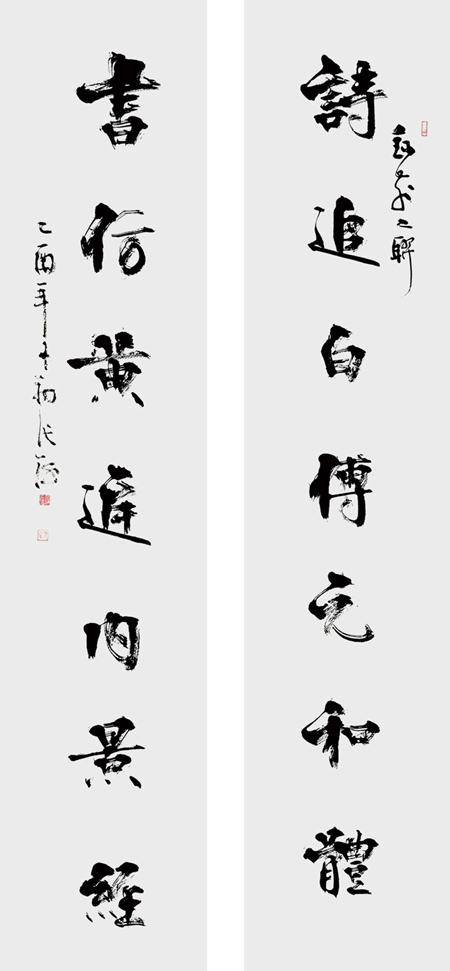 詩追白傅元和體
書仿黄庭内景經
乙酉年